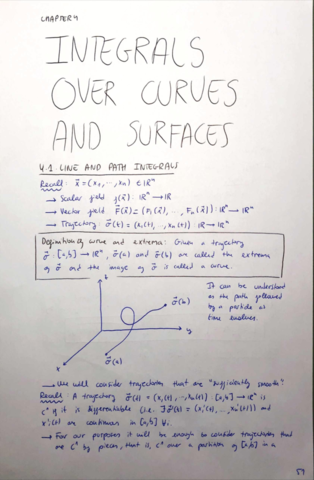 CHAPTER 4
INTEGRALS
OVER CURVES
AND SURFACES
4.1 LINE AND PATH INTEGRALS
Recall: x⃗ = (x₁, ..., xₙ) ∈ ℝⁿ
→ Scalar field f(x⃗): ℝⁿ → ℝ
→ Vector field F⃗(x⃗) = (F₁(x⃗), ..., Fₙ(x⃗)): ℝⁿ → ℝⁿ
→ Trajectory: σ⃗(t) = (x₁(t), ..., xₙ(t)): ℝ → ℝⁿ
Definition of curve and extrema: Given a trajectory
σ⃗: [a,b] → ℝⁿ, σ⃗(a) and σ⃗(b) are called the extrema
of σ⃗ and the image of σ⃗ is called a curve.
It can be understood
as the path followed
by a particle as
time evolves.
σ⃗(b)
y
x
σ⃗(a)
→ We will consider trajectories that are "sufficiently smooth"
Recall: A trajectory σ⃗(t) = (x₁(t), ..., xₙ(t)): [a,b] → ℝⁿ is
C¹ if it is differentiable (i.e. ∃ σ⃗'(t) = (x₁'(t), ..., xₙ'(t))) and
xᵢ'(t) are continuous in [a,b] ∀i.
→ For our purposes it will be enough to consider trajectories that
are C¹ by pieces, that is, C¹ over a partition of [a,b] in a